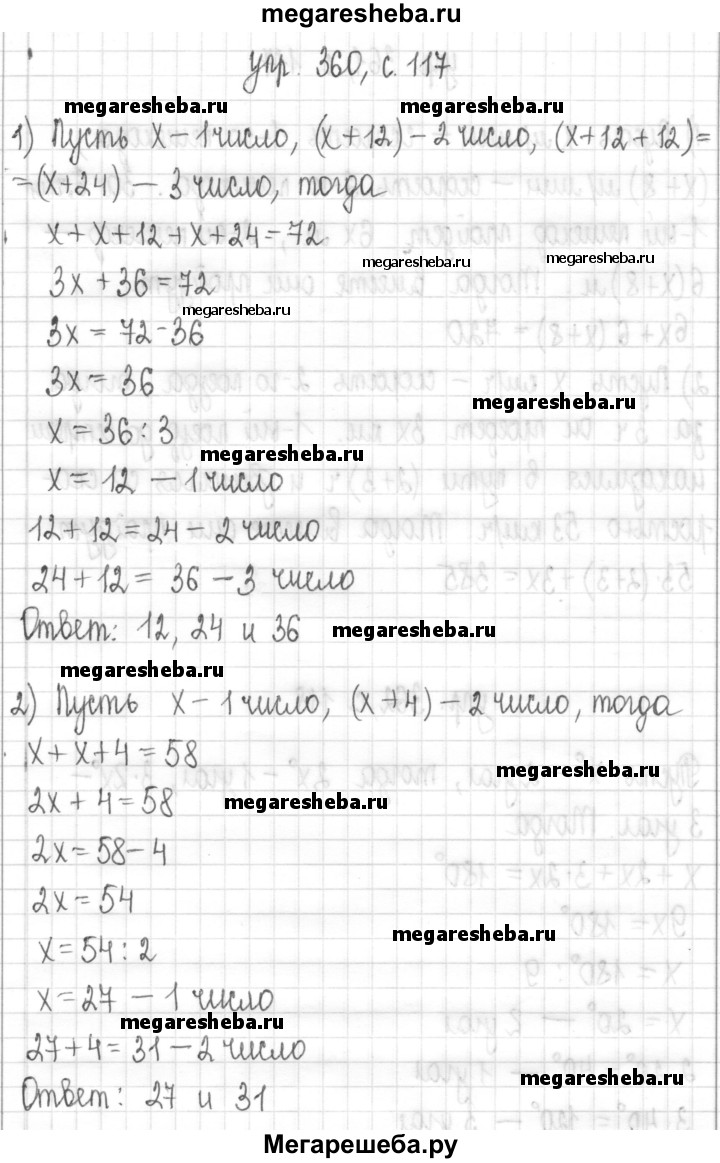 megaresheba.ru
упр. 360, с. 117
megaresheba.ru megaresheba.ru
1) Пусть x – 1 число, (x+12) – 2 число, (x+12+12)=
=(x+24) – 3 число, тогда
x+x+12+x+24=72
megaresheba.ru megaresheba.ru
3x+36=72
megaresheba.ru
3x=72-36
3x=36
megaresheba.ru
x=36:3
megaresheba.ru
x=12 – 1 число
12+12=24 – 2 число
24+12= 36 – 3 число
Ответ: 12, 24 и 36 megaresheba.ru
megaresheba.ru
2) Пусть x – 1 число, (x+4) – 2 число, тогда
x+x+4=58
megaresheba.ru
2x+4=58 megaresheba.ru
2x=58-4
2x=54
megaresheba.ru
x=54:2
x=27 – 1 число
megaresheba.ru
27+4=31 – 2 число
megaresheba.ru
Ответ: 27 и 31
Мегарешеба.ру